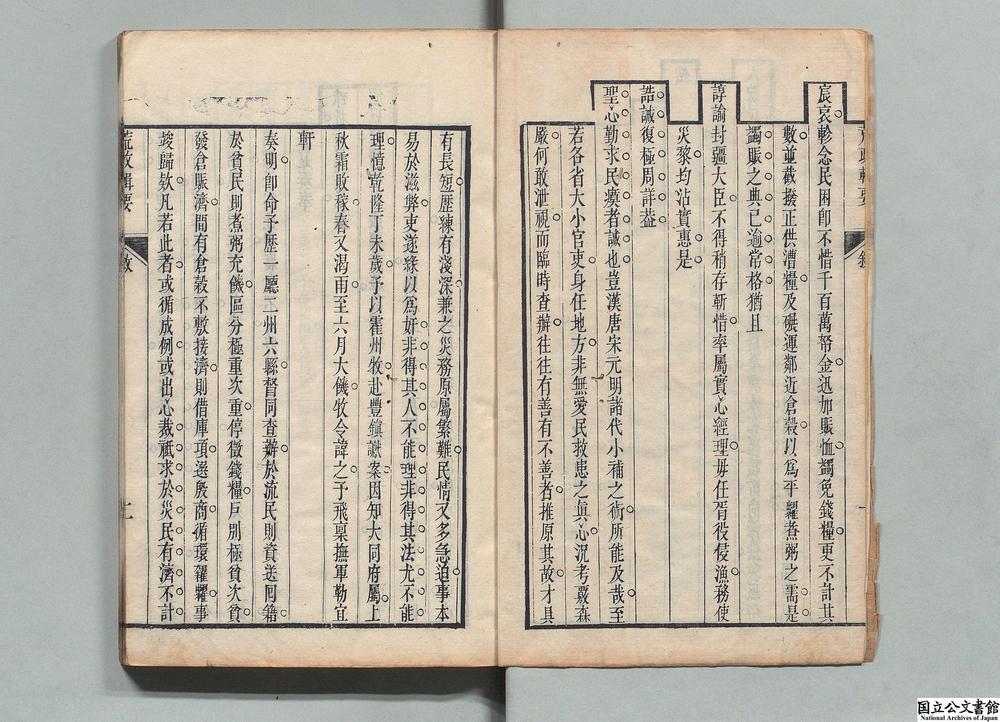 宸衷軫念民困卽不惜千百萬帑金迅加賑恤蠲免錢糧更不計其
數並截撥正供漕糧及碾運鄰近倉穀以爲平糶煮粥之需是
蠲賑之典已逾常格猶且
諄諭封疆大臣不得稍存靳惜率屬實心經理毋任胥役侵漁務使
災黎均沾實惠是
誥誡復極周詳葢
聖心勤求民瘼者誠也豈漢唐宋元明諸代小補之術所能及哉至
若各省大小官吏身任地方非無愛民救患之眞心況考覈森
嚴何敢泄視而臨時查辦往往有善有不善者推原其故才具
有長短歷練有淺深兼之災務原屬繁難民情又多急迫事本
易於滋弊吏遂緣以爲奸非得其人不能理非得其法尤不能
理憶乾隆丁未歲予以霍州牧赴豐鎮讞案因知大同府屬上
秋霜敗稼春又渴雨至六月大饑牧令諱之予飛稟撫軍勒宜
軒
奏明卽命予歷一廳二州六縣督同查辦於流民則資送囘籍
於貧民則煮粥充饑區分極重次重停徵錢糧戶別極貧次貧
發倉賑濟間有倉榖不敷接濟則借庫項選殷商循環糴糶事
竣歸欵凡若此者或循成例或出心裁祗求於災民有濟不計
荒政輯要
敘
二
国立公文書館
National Archives of Japan